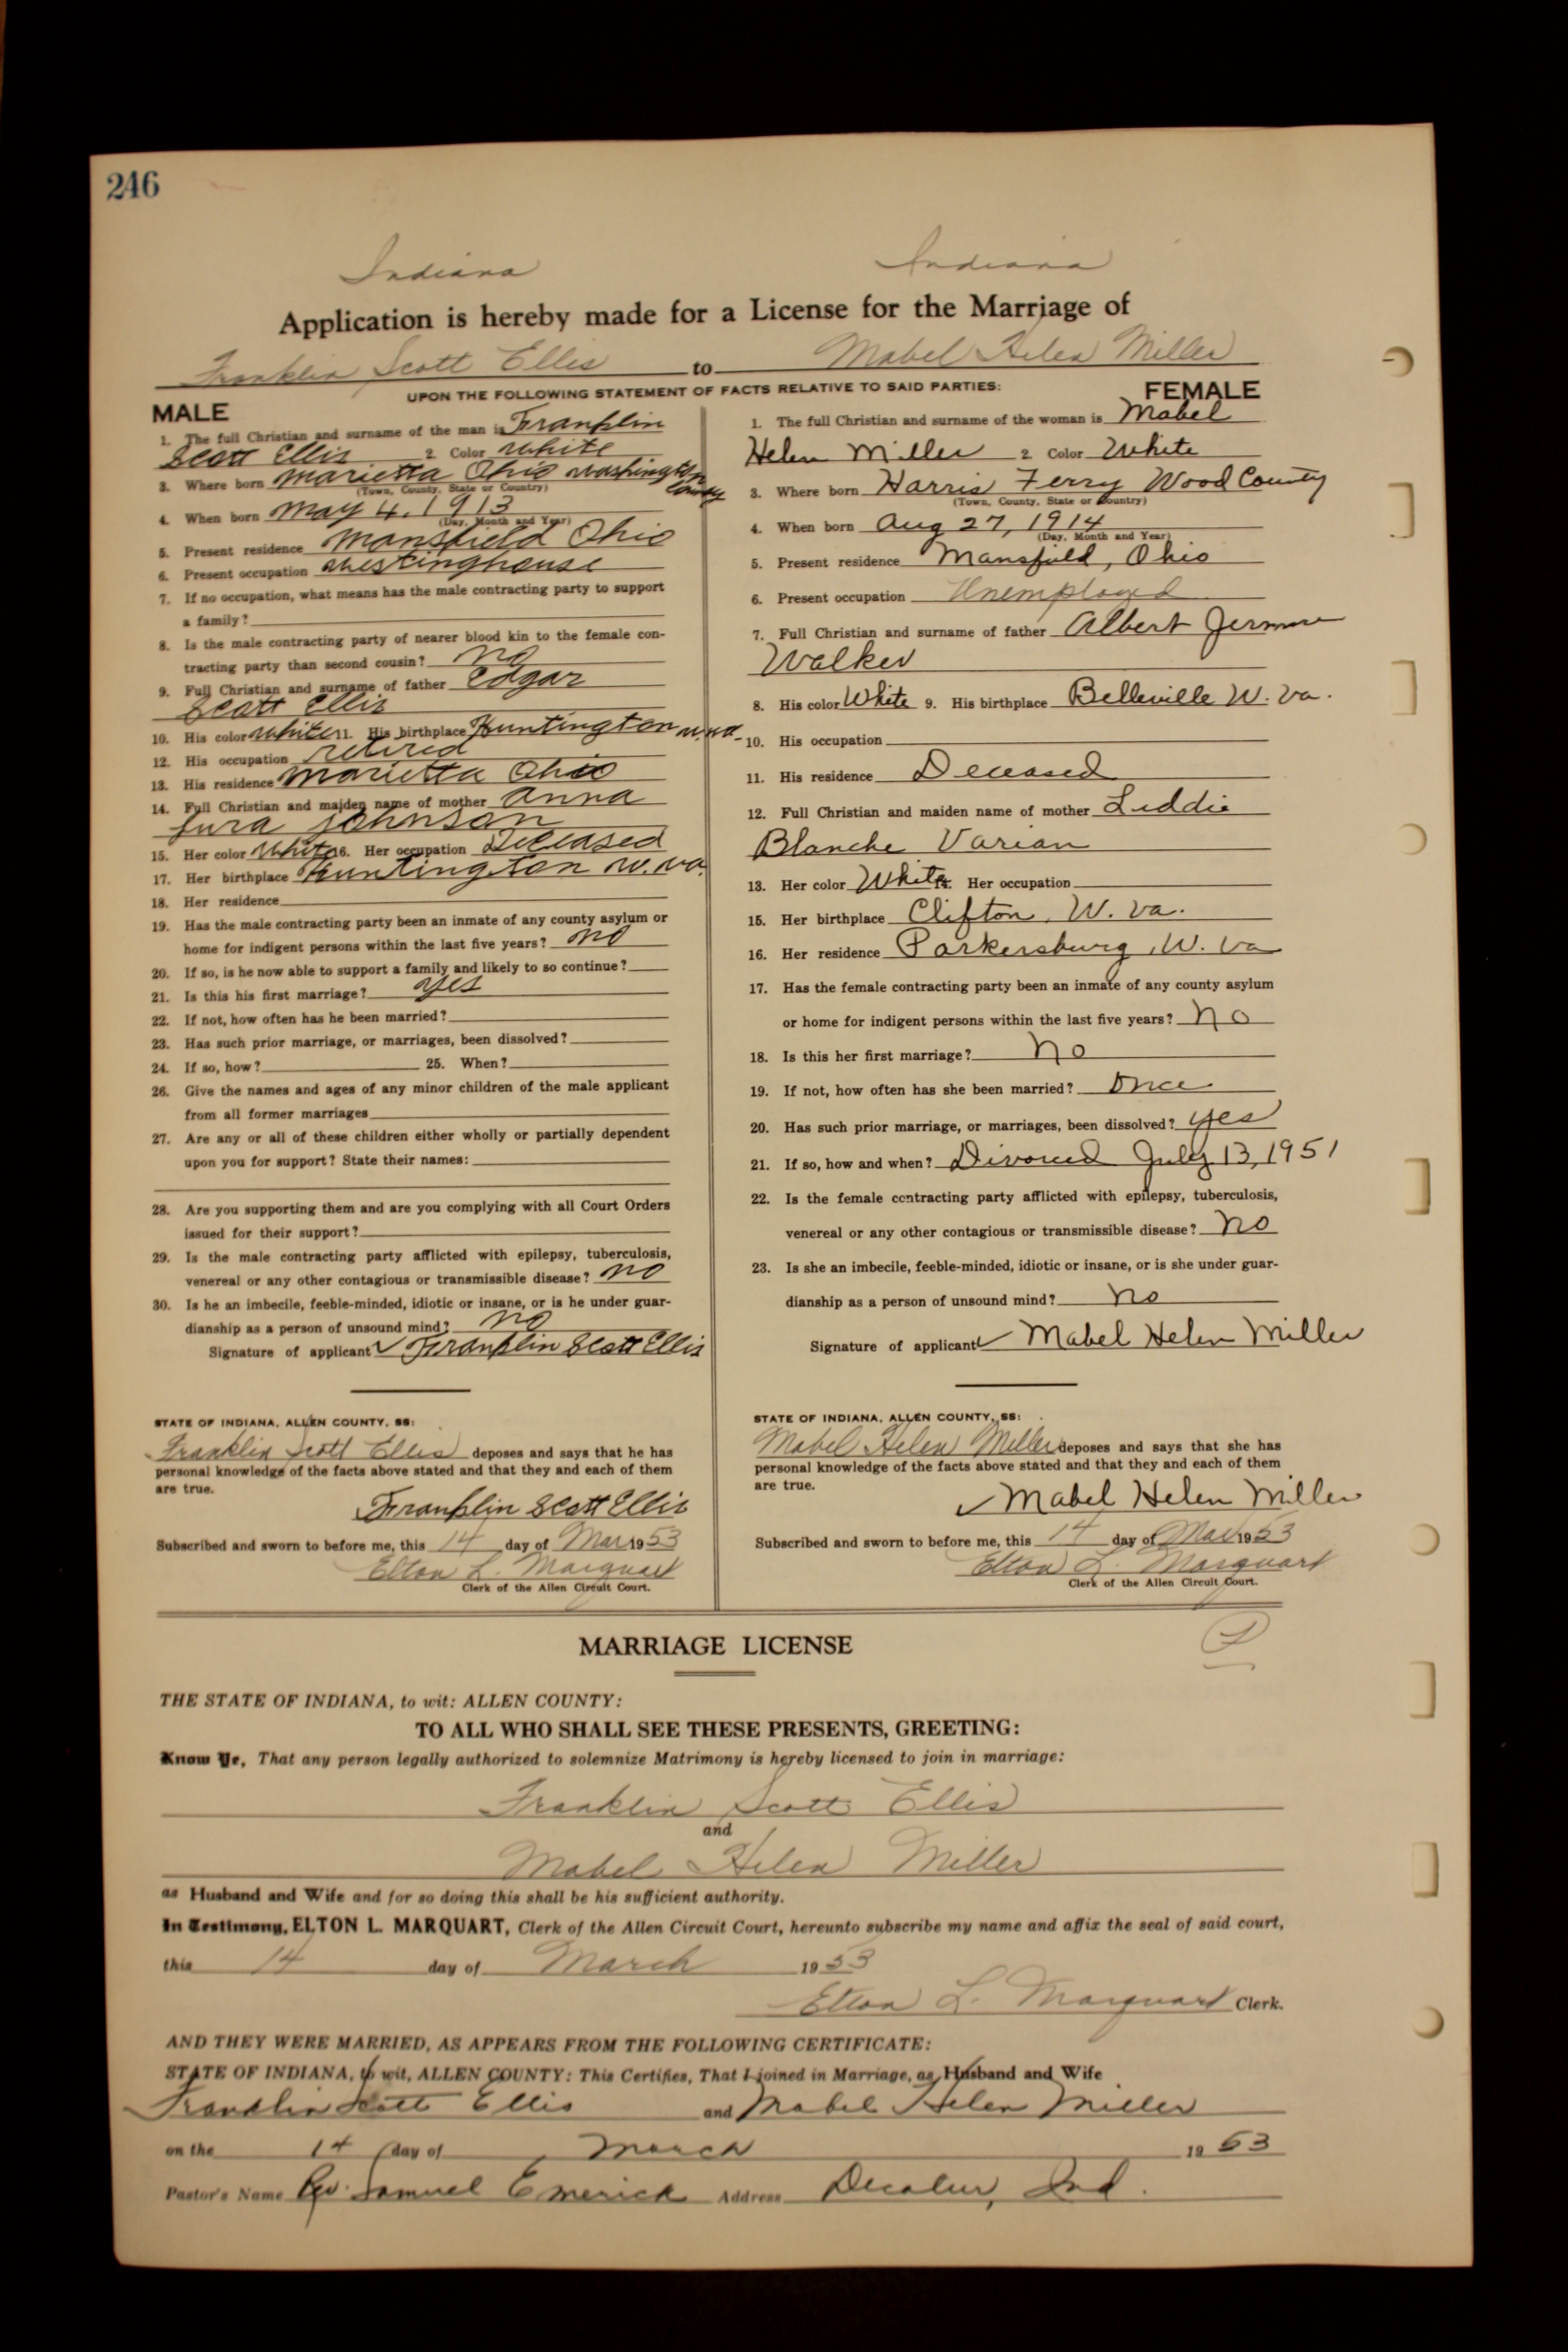 246
Indiana Indiana
Application is hereby made for a License for the Marriage of
Franklin Scott Ellis to Mabel Helen Miller
UPON THE FOLLOWING STATEMENT OF FACTS RELATIVE TO SAID PARTIES:
MALE
1. The full Christian and surname of the man is Franklin
Scott Ellis 2. Color White
3. Where born Marietta Ohio Washington County
(Town, County, State or Country)
4. When born May 4, 1913
(Day, Month and Year)
5. Present residence Mansfield Ohio
6. Present occupation Westinghouse
7. If no occupation, what means has the male contracting party to support
a family?
8. Is the male contracting party of nearer blood kin to the female con-
tracting party than second cousin? no
9. Full Christian and surname of father Edgar
Scott Ellis
10. His color White 11. His birthplace Huntington W.Va.
12. His occupation retired
13. His residence Marietta Ohio
14. Full Christian and maiden name of mother Anna
Johnson
15. Her color White 16. Her occupation Deceased
17. Her birthplace Huntington W. Va.
18. Her residence
19. Has the male contracting party been an inmate of any county asylum or
home for indigent persons within the last five years? no
20. If so, is he now able to support a family and likely to so continue?
21. Is this his first marriage? yes
22. If not, how often has he been married?
23. Has such prior marriage, or marriages, been dissolved?
24. If so, how? 25. When?
26. Give the names and ages of any minor children of the male applicant
from all former marriages
27. Are any or all of these children either wholly or partially dependent
upon you for support? State their names:
28. Are you supporting them and are you complying with all Court Orders
issued for their support?
29. Is the male contracting party afflicted with epilepsy, tuberculosis,
venereal or any other contagious or transmissible disease? no
30. Is he an imbecile, feeble-minded, idiotic or insane, or is he under guar-
dianship as a person of unsound mind? no
Signature of applicant Franklin Scott Ellis
STATE OF INDIANA, ALLEN COUNTY, SS:
Franklin Scott Ellis deposes and says that he has
personal knowledge of the facts above stated and that they and each of them
are true.
Franklin Scott Ellis
Subscribed and sworn to before me, this 14 day of Mar 1953
Elton L. Marquart
Clerk of the Allen Circuit Court.
FEMALE
1. The full Christian and surname of the woman is Mabel
Helen Miller 2. Color White
3. Where born Harris Ferry Wood County
(Town, County, State or Country)
4. When born Aug 27, 1914
(Day, Month and Year)
5. Present residence Mansfield, Ohio
6. Present occupation Unemployed
7. Full Christian and surname of father Albert
Walker
8. His color White 9. His birthplace Belleville W. Va.
10. His occupation
11. His residence Deceased
12. Full Christian and maiden name of mother Liddie
Blanche Varian
13. Her color White 14. Her occupation
15. Her birthplace Clifton, W. Va.
16. Her residence Parkersburg, W. Va
17. Has the female contracting party been an inmate of any county asylum
or home for indigent persons within the last five years? no
18. Is this her first marriage? no
19. If not, how often has she been married? Once
20. Has such prior marriage, or marriages, been dissolved? yes
21. If so, how and when? Divorced July 13, 1951
22. Is the female contracting party afflicted with epilepsy, tuberculosis,
venereal or any other contagious or transmissible disease? no
23. Is she an imbecile, feeble-minded, idiotic or insane, or is she under guar-
dianship as a person of unsound mind? no
Signature of applicant Mabel Helen Miller
STATE OF INDIANA, ALLEN COUNTY, SS:
Mabel Helen Miller deposes and says that she has
personal knowledge of the facts above stated and that they and each of them
are true.
Mabel Helen Miller
Subscribed and sworn to before me, this 14 day of Mar 1953
Elton L. Marquart
Clerk of the Allen Circuit Court.
MARRIAGE LICENSE
THE STATE OF INDIANA, to wit: ALLEN COUNTY:
TO ALL WHO SHALL SEE THESE PRESENTS, GREETING:
Know Ye, That any person legally authorized to solemnize Matrimony is hereby licensed to join in marriage:
Franklin Scott Ellis
and
Mabel Helen Miller
as Husband and Wife and for so doing this shall be his sufficient authority.
In Testimony, ELTON L. MARQUART, Clerk of the Allen Circuit Court, hereunto subscribe my name and affix the seal of said court,
this 14 day of March 1953
Elton L. Marquart Clerk.
AND THEY WERE MARRIED, AS APPEARS FROM THE FOLLOWING CERTIFICATE:
STATE OF INDIANA, to wit, ALLEN COUNTY: This Certifies, That I joined in Marriage, as Husband and Wife
Franklin Scott Ellis and Mabel Helen Miller
on the 14 day of March 1953
Pastor's Name Rev. Samuel Emerick Address Decatur, Ind.